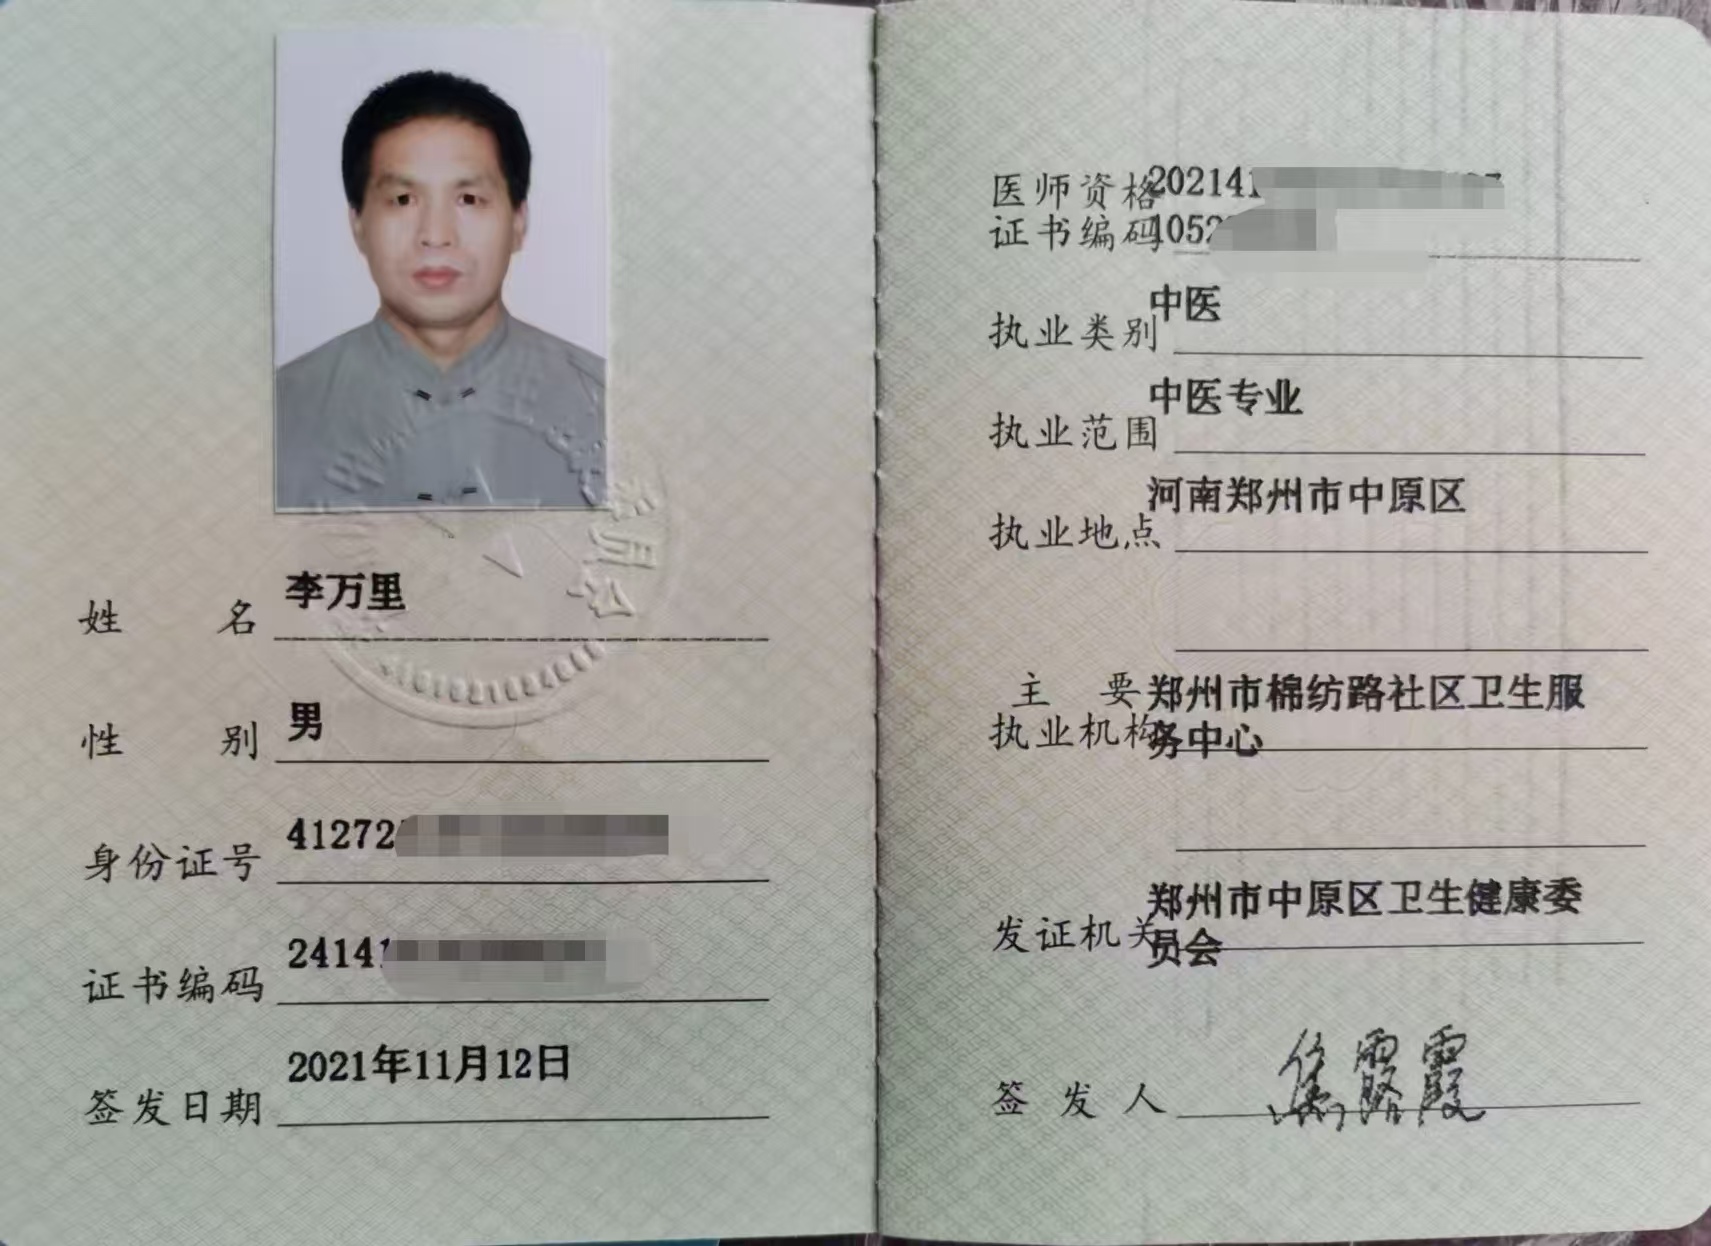 姓名 李万里
性别 男
身份证号 41272
证书编码 24141
签发日期 2021年11月12日
医师资格 202141
证书编码 1052
执业类别 中医
执业范围 中医专业
执业地点 河南郑州市中原区
主要 郑州市棉纺路社区卫生服
执业机构 务中心
发证机关 郑州市中原区卫生健康委
员会
签发人 焦露霞